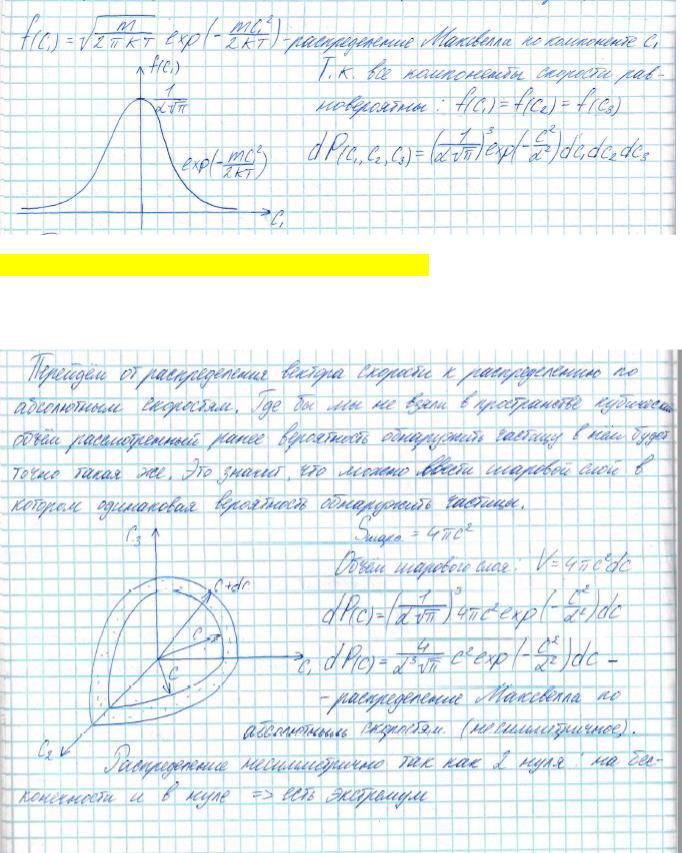 f(c₁) = √(m/2πkT) exp(-mc₁²/2kT) - распределение Максвелла по компоненте c₁
f(c₁)
Т.к. все компоненты скорости рав-
1/α√π
новероятны: f(c₁) = f(c₂) = f(c₃)
exp(-mc₁²/2kT)
dP(c₁, c₂, c₃) = (1/α√π)³ exp(-c²/α²) dc₁dc₂dc₃
c₁
Перейдём от распределения вектора скорости к распределению по
абсолютным скоростям. Где бы мы не взяли в пространстве кубический
объём рассмотренный ранее вероятность обнаружить частицу в нём будет
точно такая же. Это значит, что можно ввести шаровой слой в
котором одинаковая вероятность обнаружить частицы.
c₃
Sшара = 4πc²
Объём шарового слоя: V = 4πc²dc
c+dc
dP(c) = (1/α√π)³ 4πc² exp(-c²/α²) dc
c
c
c₁
dP(c) = 4/α³√π c² exp(-c²/α²) dc -
- распределение Максвелла по
абсолютным скоростям (несимметричное).
c₂
Распределение несимметрично так как 2 нуля: на бес-
конечности и в нуле => есть экстремум